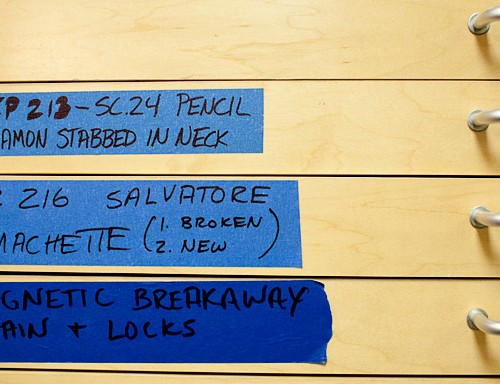 P 213-SC.24 PENCIL
AMON STABBED IN NECK
216 SALVATORE
MACHETTE (1. BROKEN
2. NEW)
GNETIC BREAKAWAY
AIN + LOCKS